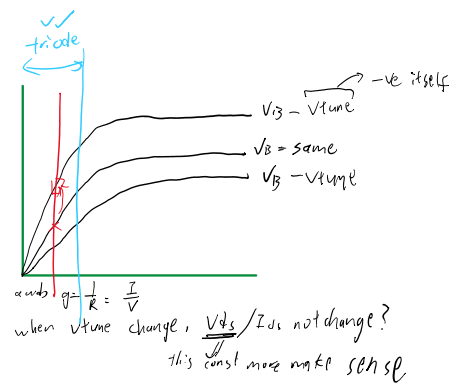 triode
-ve itself
VB - Vtune
VB = same
VB - Vtune
g = 1/R = I/V
when Vtune change, Vds / Ids not change?
this const more make sense